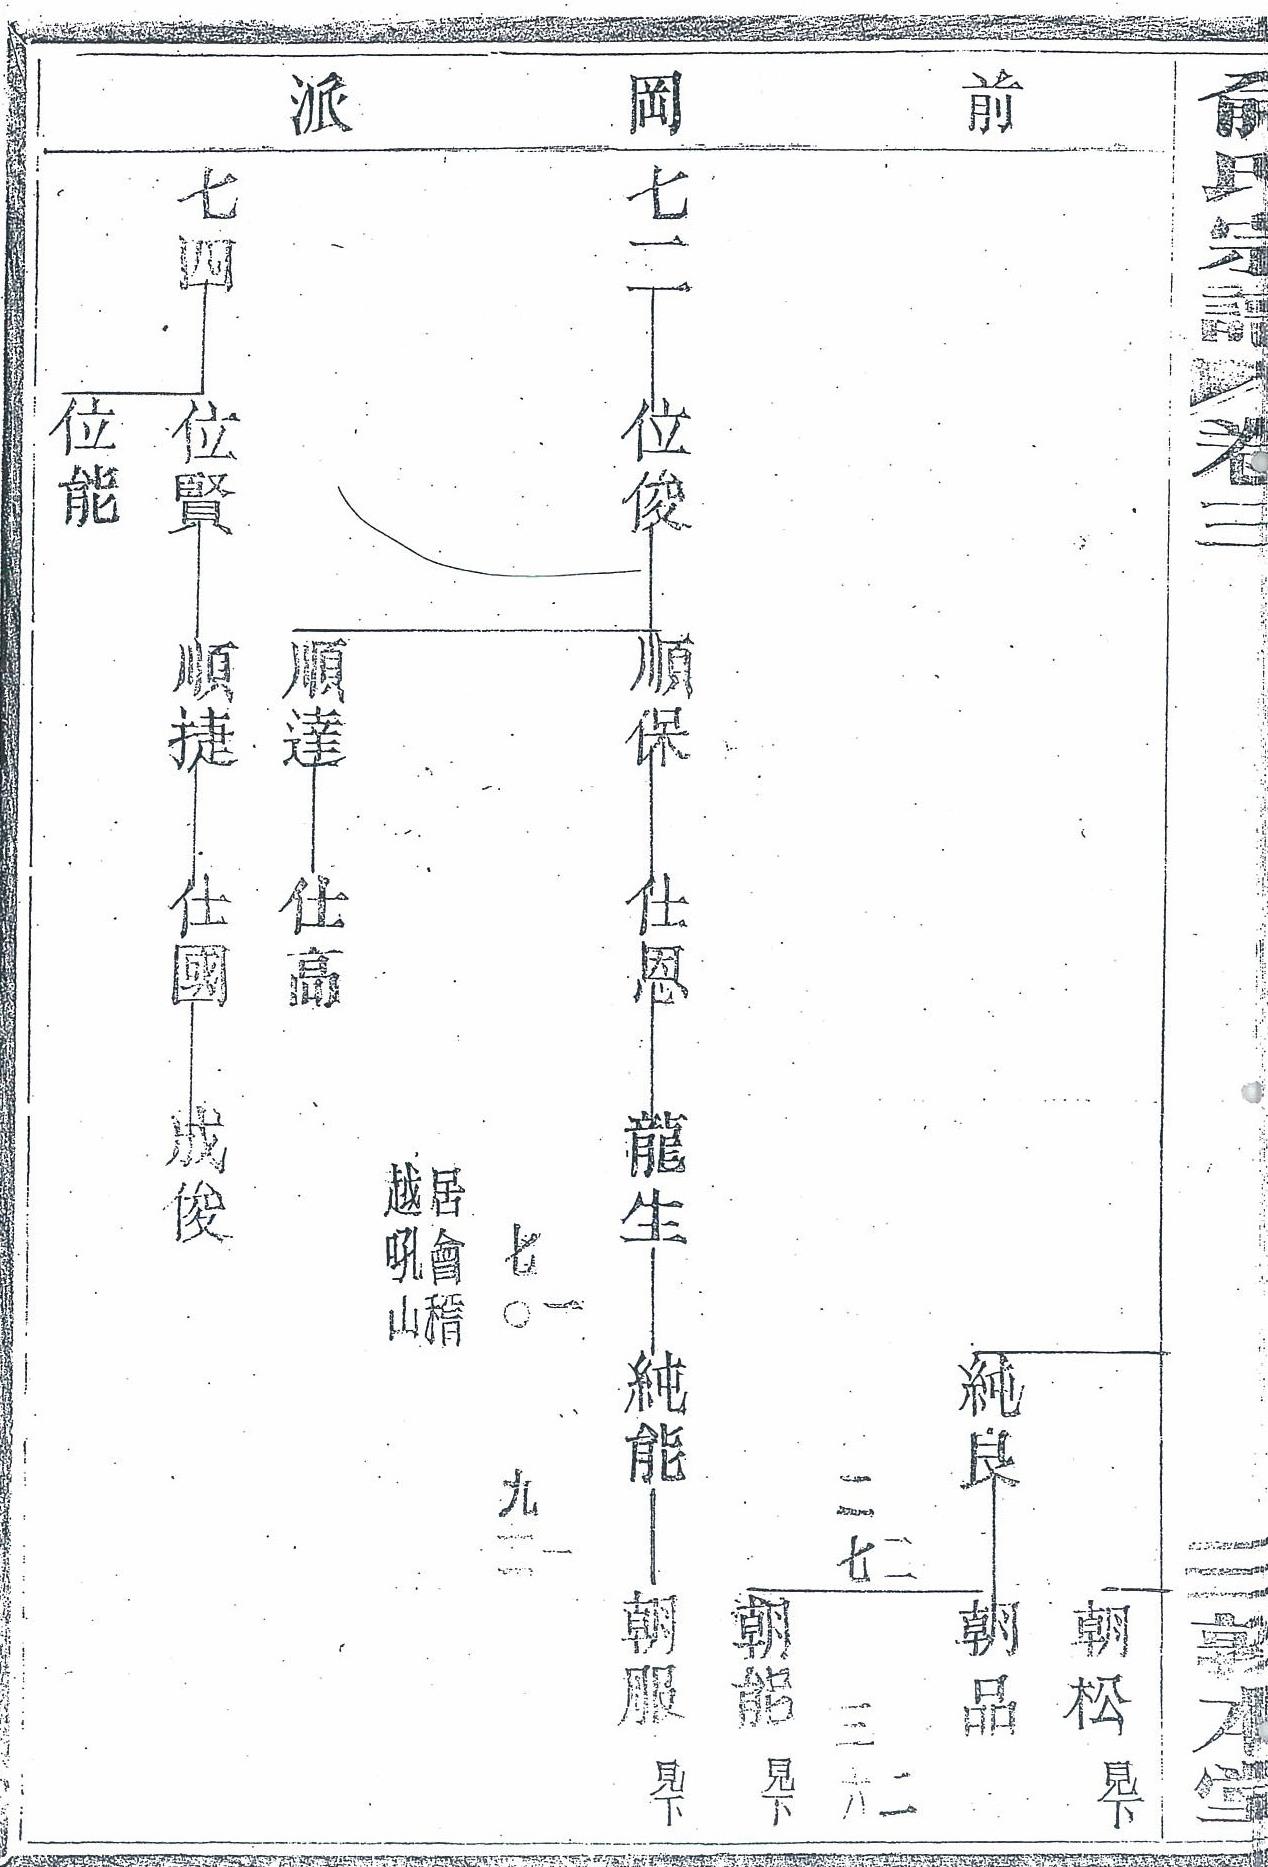 俞氏宗譜
卷三
三
敦本堂
前岡派
朝松
見下
純良
朝品
二七二
三六二
朝能
見下
七二
位俊
順保
仕恩
龍生
純能
朝服
見下
七〇一
九三一
居會稽
越吼山
順達
仕高
七四
位賢
順捷
仕國
成俊
位能